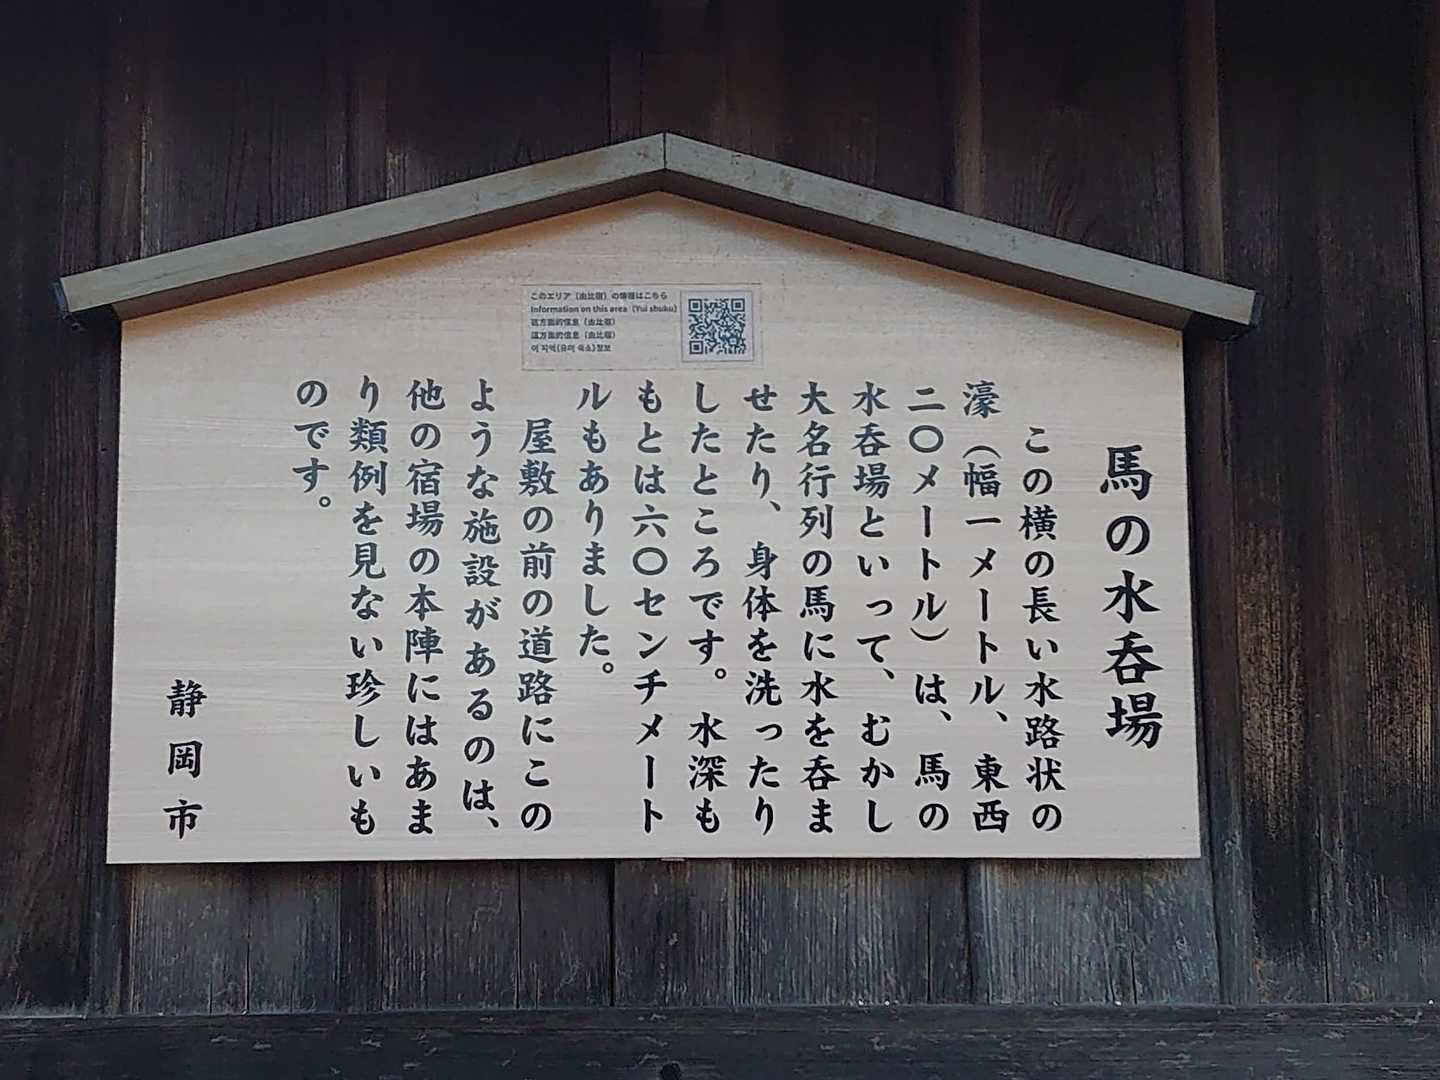 このエリア（由比宿）の情報はこちら
Information on this area（Yui shuku）
这方面的信息（由比宿）
這方面的信息（由比宿）
이 지역(유이 숙소)정보
馬の水呑場
この横の長い水路状の
濠（幅一メートル、東西
二〇メートル）は、馬の
水呑場といって、むかし
大名行列の馬に水を呑ま
せたり、身体を洗ったり
したところです。水深も
もとは六〇センチメート
ルもありました。
屋敷の前の道路にこの
ような施設があるのは、
他の宿場の本陣にはあま
り類例を見ない珍しいも
のです。
静岡市